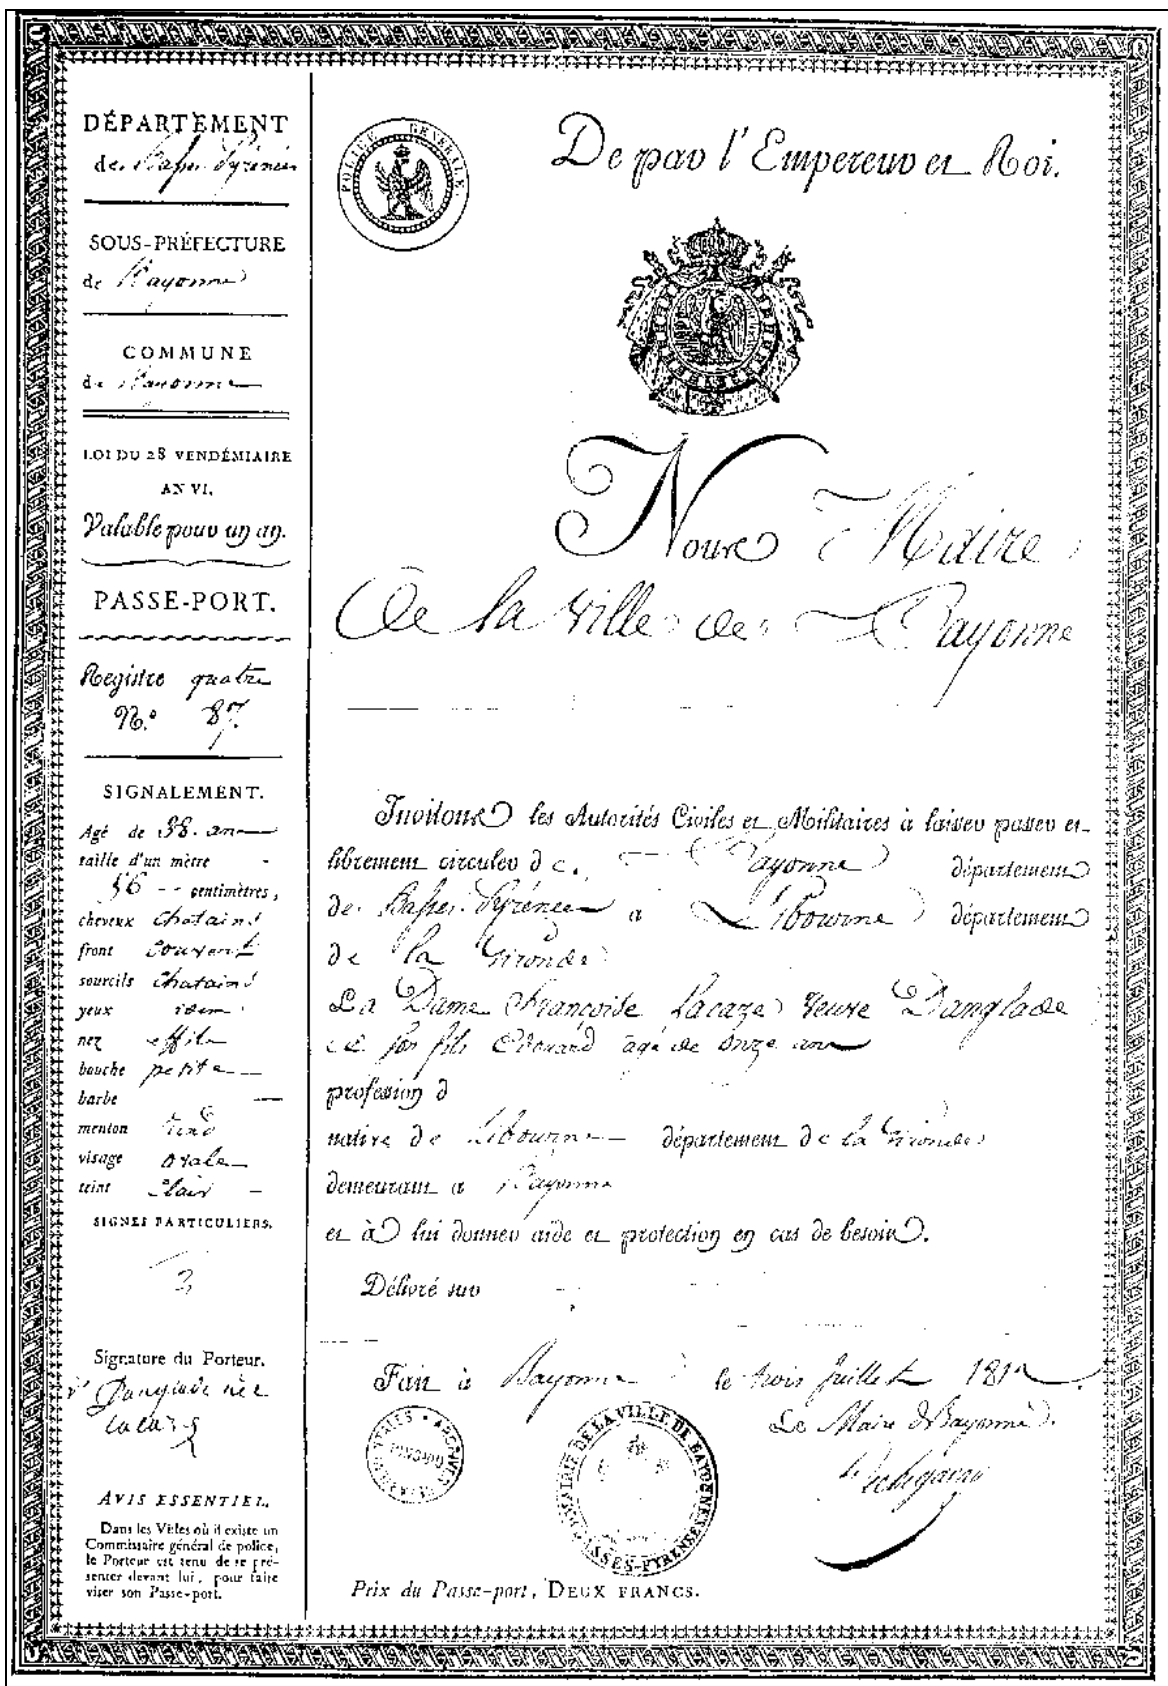 DÉPARTEMENT
des Basses Pyrénées
SOUS-PRÉFECTURE
de Bayonne
COMMUNE
de Bayonne
LOI DU 28 VENDÉMIAIRE
AN VI.
Valable pour un an.
PASSE-PORT.
Registre quatre
N.º 87
SIGNALEMENT.
Agé de 38 ans
taille d'un mètre
56 centimètres,
cheveux chatains
front couvert
sourcils chatains
yeux idem
nez effilé
bouche petite
barbe
menton rond
visage ovale
teint clair
SIGNES PARTICULIERS.
Signature du Porteur.
Danglade née
Lacaze
AVIS ESSENTIEL.
Dans les Villes où il existe un
Commissaire général de police,
le Porteur est tenu de se pré-
senter devant lui, pour faire
viser son Passe-port.
POLICE GÉNÉRALE
De par l'Empereur et Roi.
Nous Maire
de la ville de Bayonne
Invitons les Autorités Civiles et Militaires à laisser passer et
librement circuler de Bayonne département
des Basses Pyrénées a Libourne département
de la Gironde
La Dame Françoise Lacaze veuve Danglade
et son fils Edouard agé de onze ans
profession d
native de Libourne département de la Gironde
demeurant a Bayonne
et à lui donner aide et protection en cas de besoin.
Délivré sur
Fait à Bayonne le trois Juillet 181
Le Maire de Bayonne
ARCHIVES
MAIRIE DE LA VILLE DE BAYONNE BASSES-PYRENEES
Prix du Passe-port, DEUX FRANCS.